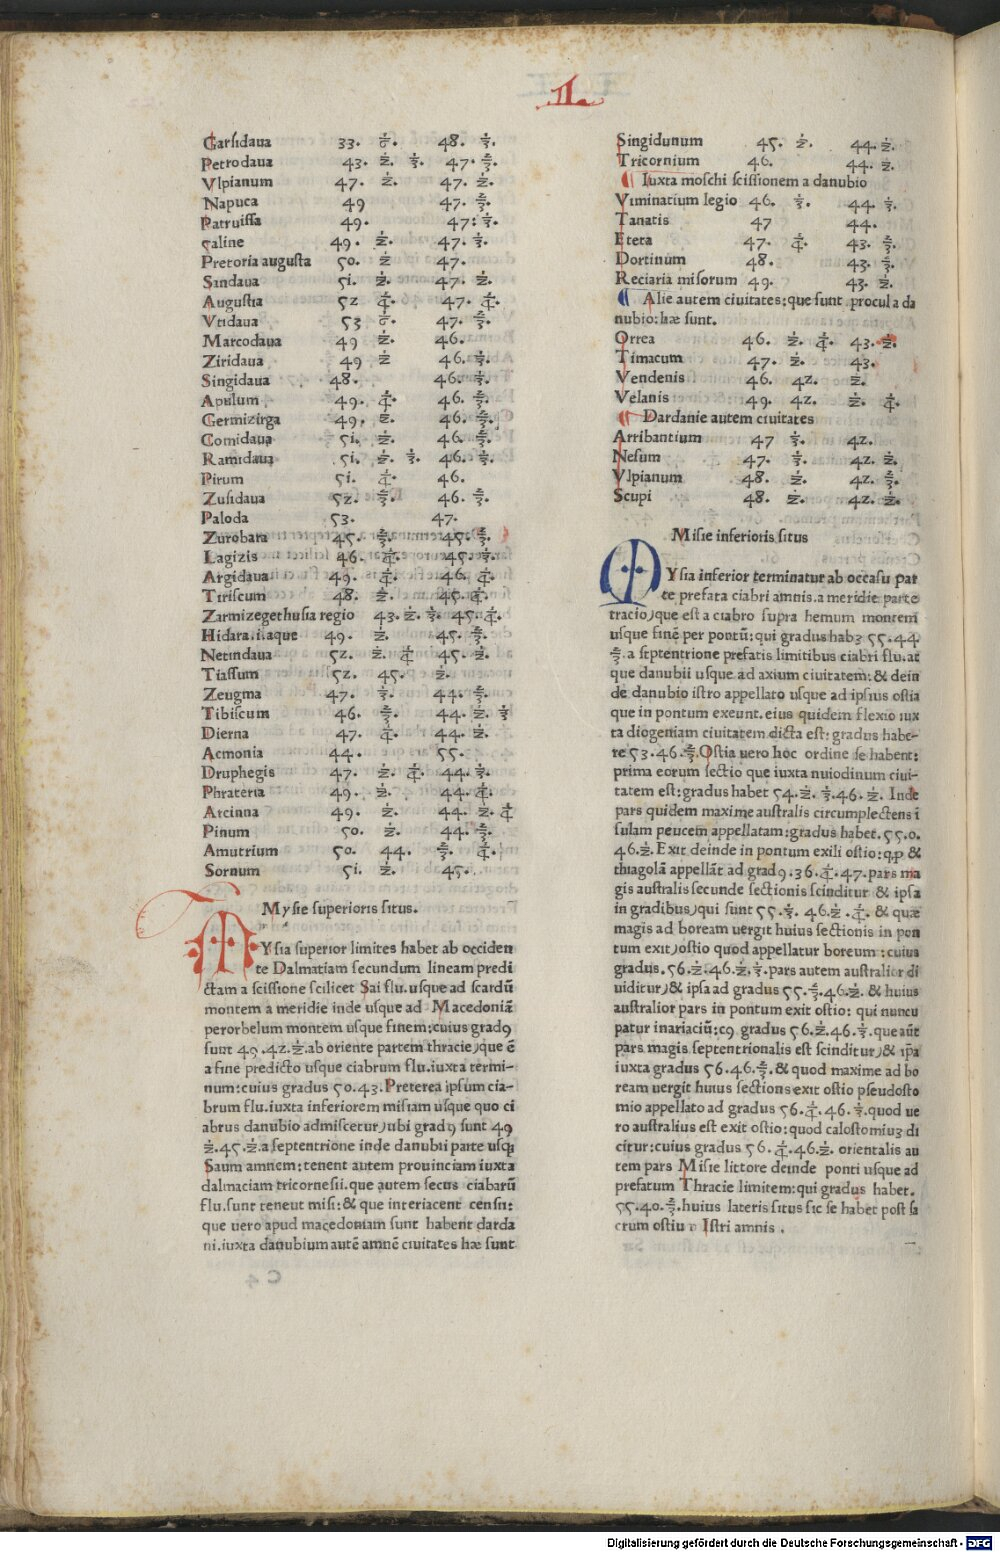 II.
Carsidaua 33. 6. 48. 3.
Petrodaua 43. 2. 3. 47. 3.
Vlpianum 47. 2. 47. 2.
Napuca 49 47. 3.
Patruissa 49. 47: 3.
Saline 49. 2. 47. 3.
Pretoria augusta 50. 2 47.
Sandaua 51. 2. 47. 2.
Augustia 52 4. 47. 4.
Vtidaua 53 6. 47. 3.
Marcodaua 49 2. 46.
Ziridaua 49 2 46. 3.
Singidaua 48. 46. 3.
Apulum 49. 4. 46. 3.
Germizirga 49. 2. 46. 3.
Comidaua 51. 2. 46. 3.
Ramidaua 51. 2. 3. 46. 3.
Pirum 51. 4. 46.
Zusidaua 52. 3. 46. 3.
Paloda 53. 47.
Zurobara 45. 3. 45. 3.
Lagizis 46. 4. 45. 3.
Argidaua 49. 4. 46. 4.
Tiriscum 48. 2. 45. 4.
Zarmizegethusia regio 43. 2. 3. 45. 4.
Hidara.i.aque 49. 2. 45. 3.
Netindaua 52. 2. 4 45. 2.
Tiassum 52. 45. 2.
Zeugma 47. 3. 44. 3.
Tibiscum 46. 3. 44. 2. 3
Dierna 47. 4. 44. 2.
Acmonia 44. 55.
Druphegis 47. 2. 4. 44. 3.
Phrateria 49. 2. 44. 4.
Arcinna 49. 2. 44. 2. 4
Pinum 50. 2. 44. 3.
Amutrium 50. 44. 3. 4.
Sornum 51. 2. 45.
Mysie superioris situs.
MYsia superior limites habet ab occiden
te Dalmatiam secundum lineam predi
ctam a scissione scilicet Sai flu. usque ad scardū
montem a meridie inde usque ad Macedoniā
perorbelum montem usque finem: cuius gradꝯ
sunt 49.42.2.ab oriente partem thracie, que ē
a fine predicto usque ciabrum flu. iuxta termi-
num: cuius gradus 50.43. Preterea ipsum cia-
brum flu. iuxta inferiorem misiam usque quo ci
abrus danubio admiscetur, ubi gradꝯ sunt 49
2.45.2.a septentrione inde danubii parte usqꝫ
Saum amnem: tenent autem prouinciam iuxta
dalmaciam tricornesii. que autem secus ciabarū
flu. sunt teneut misi: & que interiacent censii:
que uero apud macedoniam sunt habent darda
ni. iuxta danubium autē amnē ciuitates hæ sunt
Singidunum 45. 2. 44. 2.
Tricornium 46. 44. 2.
¶ Iuxta moschi scissionem a danubio
Viminatium legio 46. 3. 44. 3.
Tanatis 47 44.
Eteta 47. 4. 43. 3.
Dortinum 48. 43. 3.
Reciaria misorum 49. 43. 2.
¶ Alie autem ciuitates: que sunt procul a da
nubio: hæ sunt.
Orrea 46. 2. 4. 43. 2.
Timacum 47. 2. 43.
Vendenis 46. 42. 2.
Velanis 49. 42. 2. 4.
¶ Dardanie autem ciuitates
Arribantium 47 3. 42.
Nesum 47. 3. 42. 2.
Vlpianum 48. 2. 42. 3.
Scupi 48. 2. 42. 2.
Misie inferioris situs
MYsia inferior terminatur ab occasu par
te prefata ciabri amnis. a meridie parte
tracio, que est a ciabro supra hemum montem
usque finē per pontū: qui gradus habꝫ 55.44
3. a septentrione prefatis limitibus ciabri flu. at
que danubii usque ad axium ciuitatem: & dein
de danubio istro appellato usque ad ipsius ostia
que in pontum exeunt. eius quidem flexio iux
ta diogeniam ciuitatem dicta est: gradus habe-
re 53.46.3. Ostia uero hoc ordine se habent:
prima eorum sectio que iuxta nuiodinum ciui-
tatem est: gradus habet 54.2.3.46.2. Inde
pars quidem maxime australis circumplectens ī
sulam peucem appellatam: gradus habet. 55.0.
46.2. Exit deinde in pontum exili ostio: qꝫ &
thiagolā appellāt ad gradꝯ.36.4.47. pars ma
gis australis secunde sectionis scinditur & ipsa
in gradibus, qui sunt 55.3. 46.2.4. & quæ
magis ad boream uergit huius sectionis in pon
tum exit, ostio quod appellatur boreum: cuius
gradus. 56.2.46.2.3. pars autem australior di
uiditur, & ipsa ad gradus 55.3.46.2. & huius
australior pars in pontum exit ostio: qui nuncu
patur inariaciū: cꝯ gradus 56.2.46.3. que aūt
pars magis septentrionalis est scinditur, & ip̄a
iuxta gradus 56.46.3. & quod maxime ad bo
ream uergit huius sections exit ostio pseudosto
mio appellato ad gradus 56.4.46.3. quod ue
ro australius est exit ostio: quod calostomiuꝫ di
citur: cuius gradus 56.4.46.2. orientalis au
tem pars Misie littore deinde ponti usque ad
prefatum Thracie limitem: qui gradus habet.
55.40.3. huius lateris situs sic se habet post sa
crum ostiu Istri amnis.
Digitalisierung gefördert durch die Deutsche Forschungsgemeinschaft - DFG